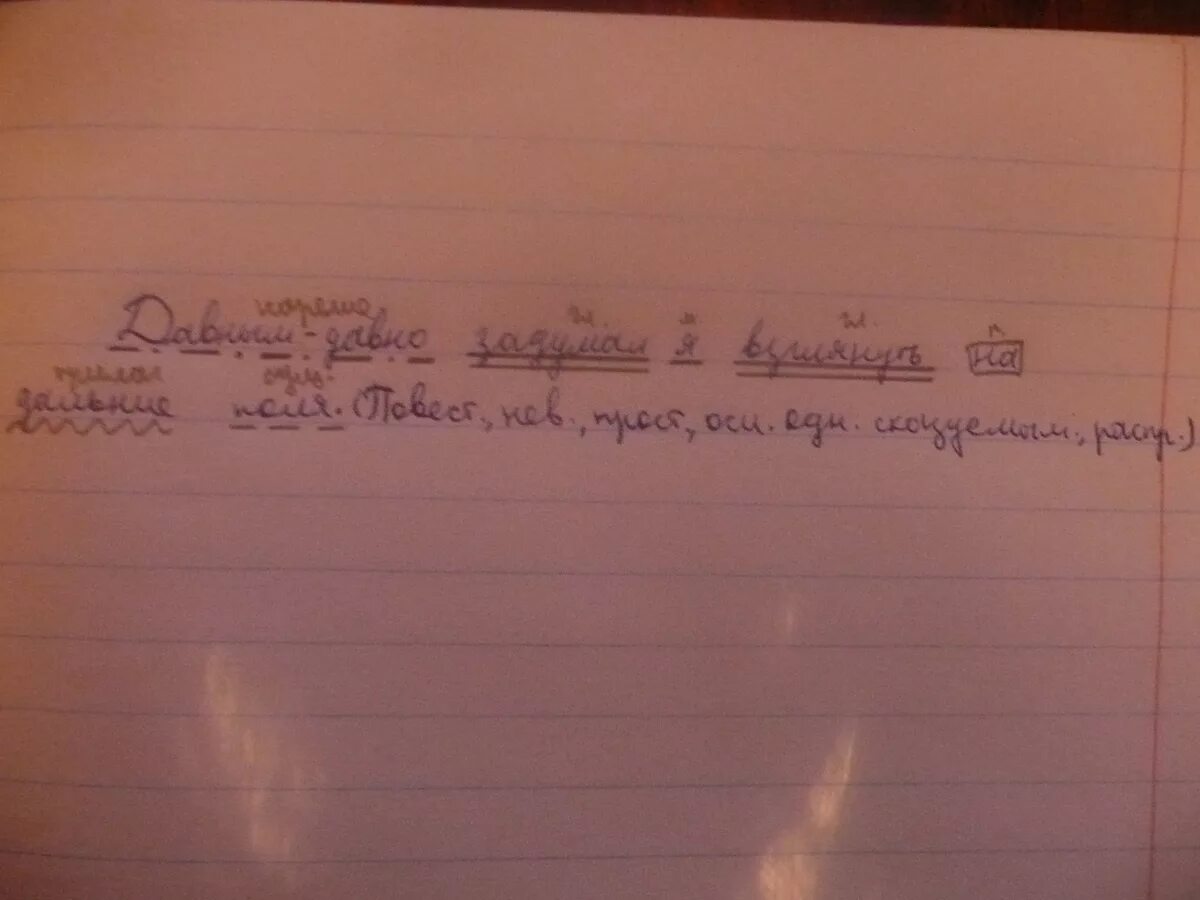 наречие гл. м гл. п
Давным-давно задумал я взглянуть на
прилаг
дальние поля. (Повест., нев., прост., осл. одн. сказуемым., распр.)